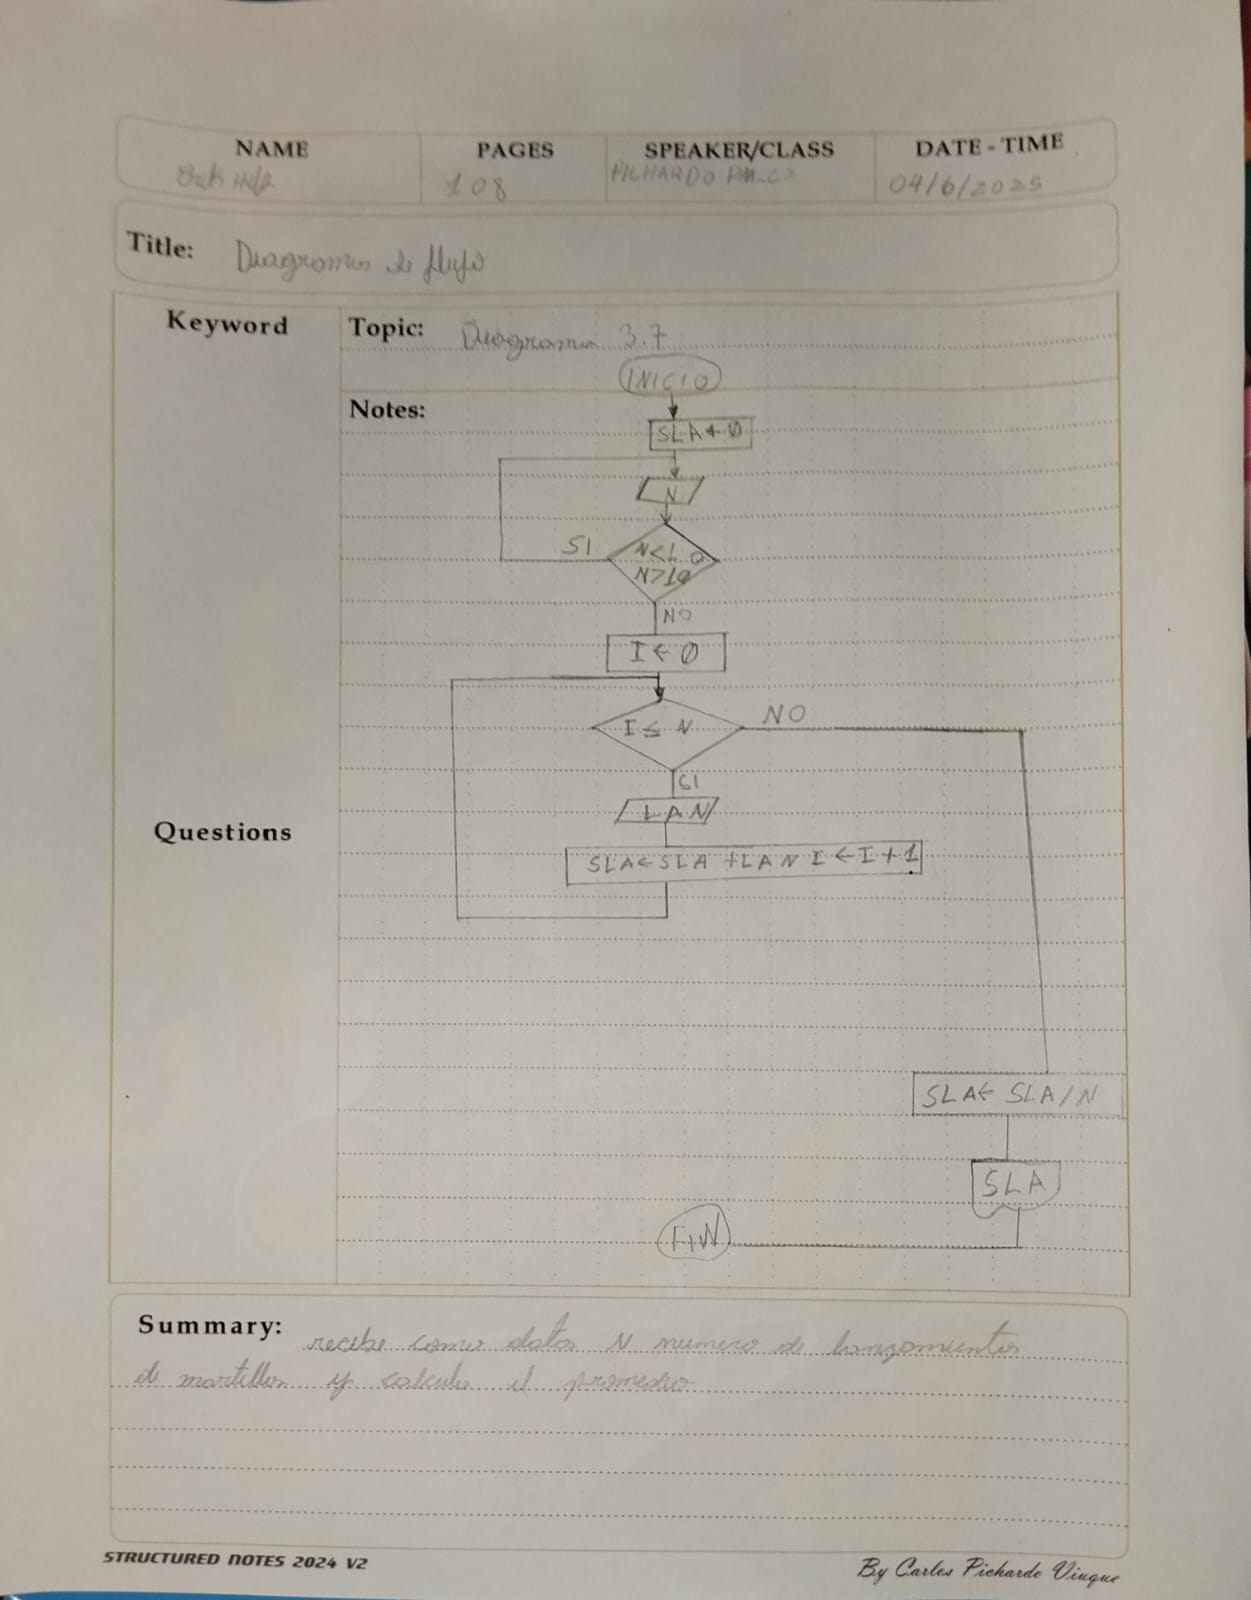 NAME PAGES SPEAKER/CLASS DATE - TIME
108 PICHARDO 04/6/2025
Title: Diagramas de flujo
Keyword Topic: Diagrama 3.7
INICIO
Notes:
SLA ← 0
N
SI N<1 O
N>10
NO
I ← 0
I ≤ N NO
SI
LAN
Questions
SLA ← SLA + LAN I ← I + 1
SLA ← SLA / N
SLA
FIN
Summary: recibe como datos N numero de lanzamientos
de martillos y calcula el promedio
STRUCTURED NOTES 2024 V2 By Carlos Pichardo Viuque